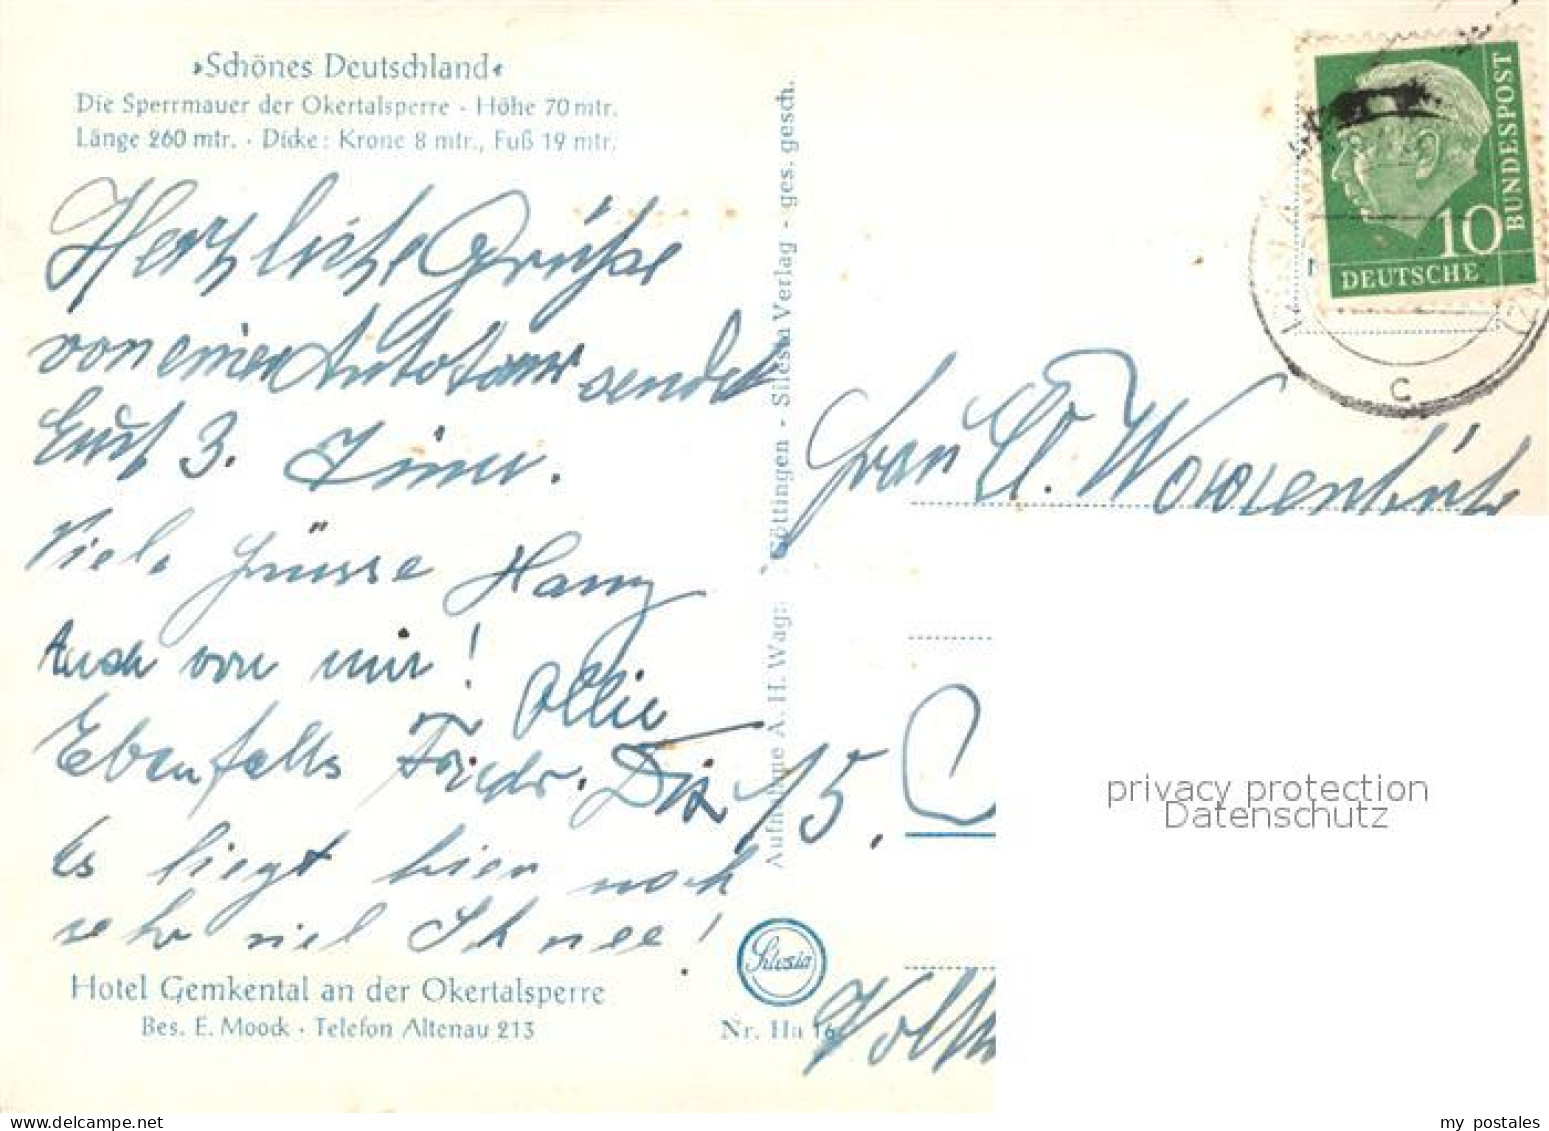 »Schönes Deutschland«
Die Sperrmauer der Okertalsperre · Höhe 70 mtr.
Länge 260 mtr. · Dicke: Krone 8 mtr., Fuß 19 mtr.
Herzliche Grüße
von einer Autotour sendet
3.
Viele Grüsse Harry
Auch von mir!
Ollie
Ebenfalls Friedr.
Es liegt hier noch
sehr viel Schnee!
Hotel Gemkental an der Okertalsperre
Bes. E. Moock · Telefon Altenau 213
Silesia
Nr. Ha 16
Aufnahme A. H. Wagn Göttingen - Silesia Verlag - ges. gesch.
10
DEUTSCHE
BUNDESPOST
c
Frau
privacy protection
Datenschutz
my postales